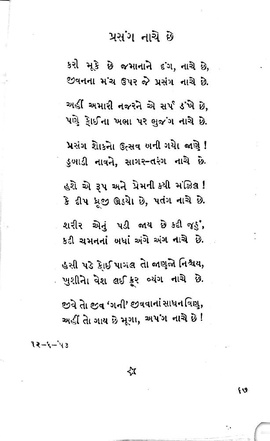 પ્રસંગ નાચે છે
કરી મૂકે છે જમાનાને દંગ, નાચે છે,
જીવનના મંચ ઉપર જે પ્રસંગ નાચે છે.
અહીં અમારી નજરને એ સર્પ ડંખે છે,
પણે કોઈના ખભા પર ભુજંગ નાચે છે.
પ્રસંગ શોકનો ઉત્સવ બની ગયો જાણે !
ડુબાડી નાવને, સાગર-તરંગ નાચે છે.
હશે એ રૂપ અને પ્રેમની કયી મંઝિલ !
કે દીપ મૂજી ઊઠયો છે, પતંગ નાચે છે.
શરીર એનું પડી જાય છે કદી જુઠું,
કદી ચમનનાં બધાં અંગે અંગ નાચે છે.
હસી પડે કોઈ પાગલ તો જાણજો નિશ્ચય,
ખુશીનો વેશ લઈ ક્રૂર વ્યંગ નાચે છે.
જીવે તો જીવ 'ગની' જીવવાનાં સાધન વિણ,
અહીં તો ગાય છે મૂગા, અપંગ નાચે છે !
૧૨-૬-'૫૩
૬૭